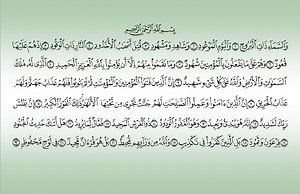 بِسْمِ اللَّهِ الرَّحْمَٰنِ الرَّحِيمِ
وَالسَّمَاءِ ذَاتِ الْبُرُوجِ ۝ وَالْيَوْمِ الْمَوْعُودِ ۝ وَشَاهِدٍ وَمَشْهُودٍ ۝ قُتِلَ أَصْحَابُ الْأُخْدُودِ ۝ النَّارِ ذَاتِ الْوَقُودِ ۝ إِذْ هُمْ عَلَيْهَا
قُعُودٌ ۝ وَهُمْ عَلَىٰ مَا يَفْعَلُونَ بِالْمُؤْمِنِينَ شُهُودٌ ۝ وَمَا نَقَمُوا مِنْهُمْ إِلَّا أَنْ يُؤْمِنُوا بِاللَّهِ الْعَزِيزِ الْحَمِيدِ ۝ الَّذِي لَهُ مُلْكُ
السَّمَاوَاتِ وَالْأَرْضِ وَاللَّهُ عَلَىٰ كُلِّ شَيْءٍ شَهِيدٌ ۝ إِنَّ الَّذِينَ فَتَنُوا الْمُؤْمِنِينَ وَالْمُؤْمِنَاتِ ثُمَّ لَمْ يَتُوبُوا فَلَهُمْ عَذَابُ جَهَنَّمَ وَلَهُمْ
عَذَابُ الْحَرِيقِ ۝ إِنَّ الَّذِينَ آمَنُوا وَعَمِلُوا الصَّالِحَاتِ لَهُمْ جَنَّاتٌ تَجْرِي مِنْ تَحْتِهَا الْأَنْهَارُ ذَٰلِكَ الْفَوْزُ الْكَبِيرُ ۝ إِنَّ بَطْشَ
رَبِّكَ لَشَدِيدٌ ۝ إِنَّهُ هُوَ يُبْدِئُ وَيُعِيدُ ۝ وَهُوَ الْغَفُورُ الْوَدُودُ ۝ ذُو الْعَرْشِ الْمَجِيدُ ۝ فَعَّالٌ لِمَا يُرِيدُ ۝ هَلْ أَتَاكَ حَدِيثُ الْجُنُودِ
۝ فِرْعَوْنَ وَثَمُودَ ۝ بَلِ الَّذِينَ كَفَرُوا فِي تَكْذِيبٍ ۝ وَاللَّهُ مِنْ وَرَائِهِمْ مُحِيطٌ ۝ بَلْ هُوَ قُرْآنٌ مَجِيدٌ ۝ فِي لَوْحٍ مَحْفُوظٍ ۝